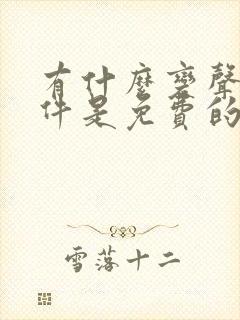 有什麼變聲
件是免費的
雪落十二